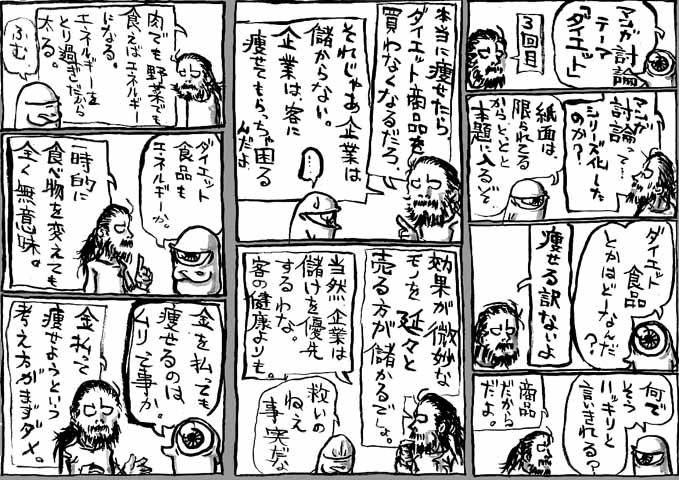 マンガ討論
テーマ
「ダイエット」
3回目
マンガ
討論って…
シリーズ化した
のか?
紙面は、
限られてる
からとっとと
本題に入るぞ
ダイエット
食品
とかはどーなんだ?
痩せる訳ないよ
何で
そう
ハッキリと
言いきれる?
商品
だから
だよ。
本当に痩せたら
ダイエット商品を
買わなくなるだろ。
それじゃあ企業は
儲からない。
企業は客に
痩せてもらっちゃ困る
んだよ
…!
効果が微妙な
モノを延々と
売る方が儲かるでしょ。
当然企業は
儲けを優先
するわな。
客の健康よりも。
救いの
ねえ
事実だな
肉でも野菜でも
食えばエネルギー
になる。
エネルギーを
とり過ぎだから
太る。
ふむ
ダイエット
食品も
エネルギーか。
一時的に
食べ物を変えても
全く無意味。
金を払っても
痩せるのは
ムリって事か。
金払って
痩せようという
考え方がまずダメ。